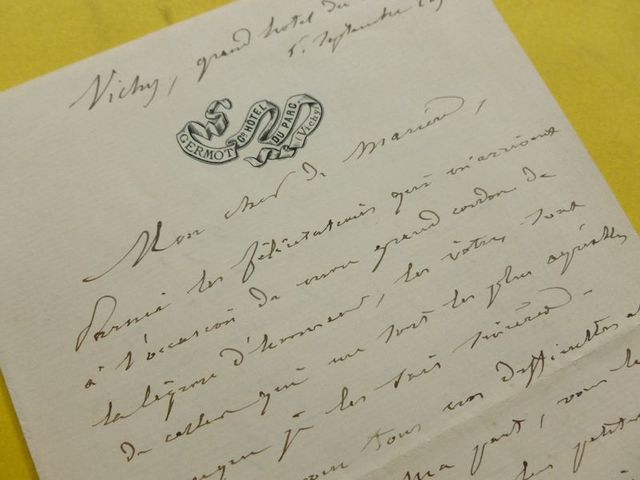 Vichy, grand hotel du
5. Septembre
GERMOT Gd HOTEL DU PARC. (Vichy)
Mon cher de
Parmi les félicitations qui m'arrivent
à l'occasion de mon grand cordon de
la légion d'honneur, les vôtres sont
de celles qui me sont les plus agréables
je les sais sincères.
tous vos difficultés
ma part, vous le
les petites